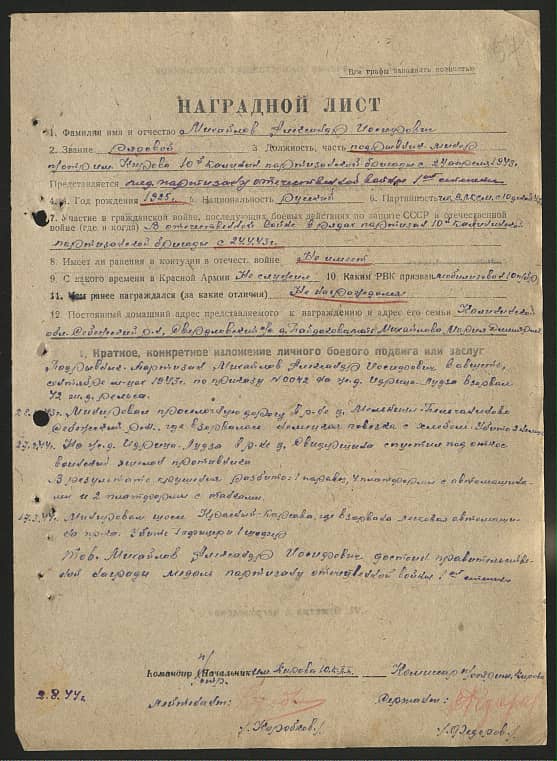 Все графы заполнять полностью
НАГРАДНОЙ ЛИСТ
1. Фамилия имя и отчество Михайлов Александр Иосифович
2. Звание рядовой 3 Должность, часть подрывник минер
п/отр им. Кирова 10й калинин. партизанской бригады с 24 апреля 1943.
Представляется мед. партизану отечественной войны 1ой степени
4. Год рождения 1925 г. 5. Национальность Русский 6. Партийность
7. Участие в гражданской войне, последующих боевых действиях по защите СССР и отечественной
войне (где и когда) В отечественной войне в рядах партизан 10ой калининской
партизанской бригады с 24.4.43 г.
8. Имеет ли ранения и контузии в отечест. войне Не имеет
9. С какого времени в Красной Армии Не служил 10. Каким РВК призван мобилизован
11. Чем ранее награждался (за какие отличия) Не награждался
12. Постоянный домашний адрес представляемого к награждению и адрес его семьи Калининская
обл. Себежский р-н, Свердловский с/с д. Михайлова Мария
I. Краткое, конкретное изложение личного боевого подвига или заслуг
Подрывник-партизан Михайлов Александр Иосифович в августе,
сентябре м-цах 1943 г. по приказу №0042 на ж.д. Идрица-Лудза взорвал
42 ж.д. рельса.
Минировал проселочную дорогу в р-не д.
Себежский р-н. где взорвалась немецкая повозка с хлебом. Убито 2 немца
На ж.д. Идрица-Лудза в р-не д. Свидушиха спустил под откос
воинский эшелон противника
В результате крушения разбито: 1 паровоз, 4 платформ с автомашина-
ми и 2 платформы с танками.
Минировал шоссе где взорвана легковая автомашина
пр-ка. Убит 1 офицер и 1 шофер
Тов. Михайлов Александр Иосифович достоин правительствен-
ной награды медаль партизану отечественной войны 1ой степени
Командир (Начальник) им. Кирова 10 К.П.Б. Комиссар п/отр. им. Кирова
2.8.44 г. лейтенант: сержант:
/Коробков/ /Федоров/